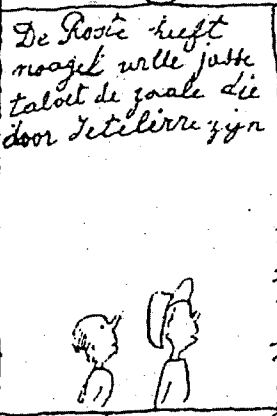 De Rosie heeft
noagel wille jasse
taloet de zaale die
door Tetelirre zijn